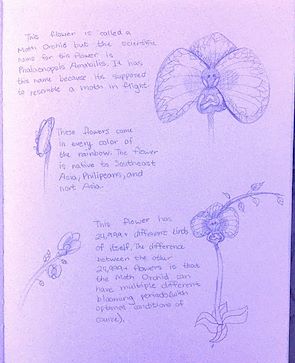 This flower is called a
Moth Orchid but the scientific
name for this flower is
Phalaenopsis Amabilis. It has
this name because its supposed
to resemble a moth in flight.
These flowers come
in every color of
the rainbow. The flower
is native to Southeast
Asia, Philipeans, and
nort Asia.
This flower has
24,999+ different kinds
of itself. The difference
between the other
24,999+ flowers is that
the Moth Orchid can
have multiple different
blooming periods (with
optimal conditions of
course).